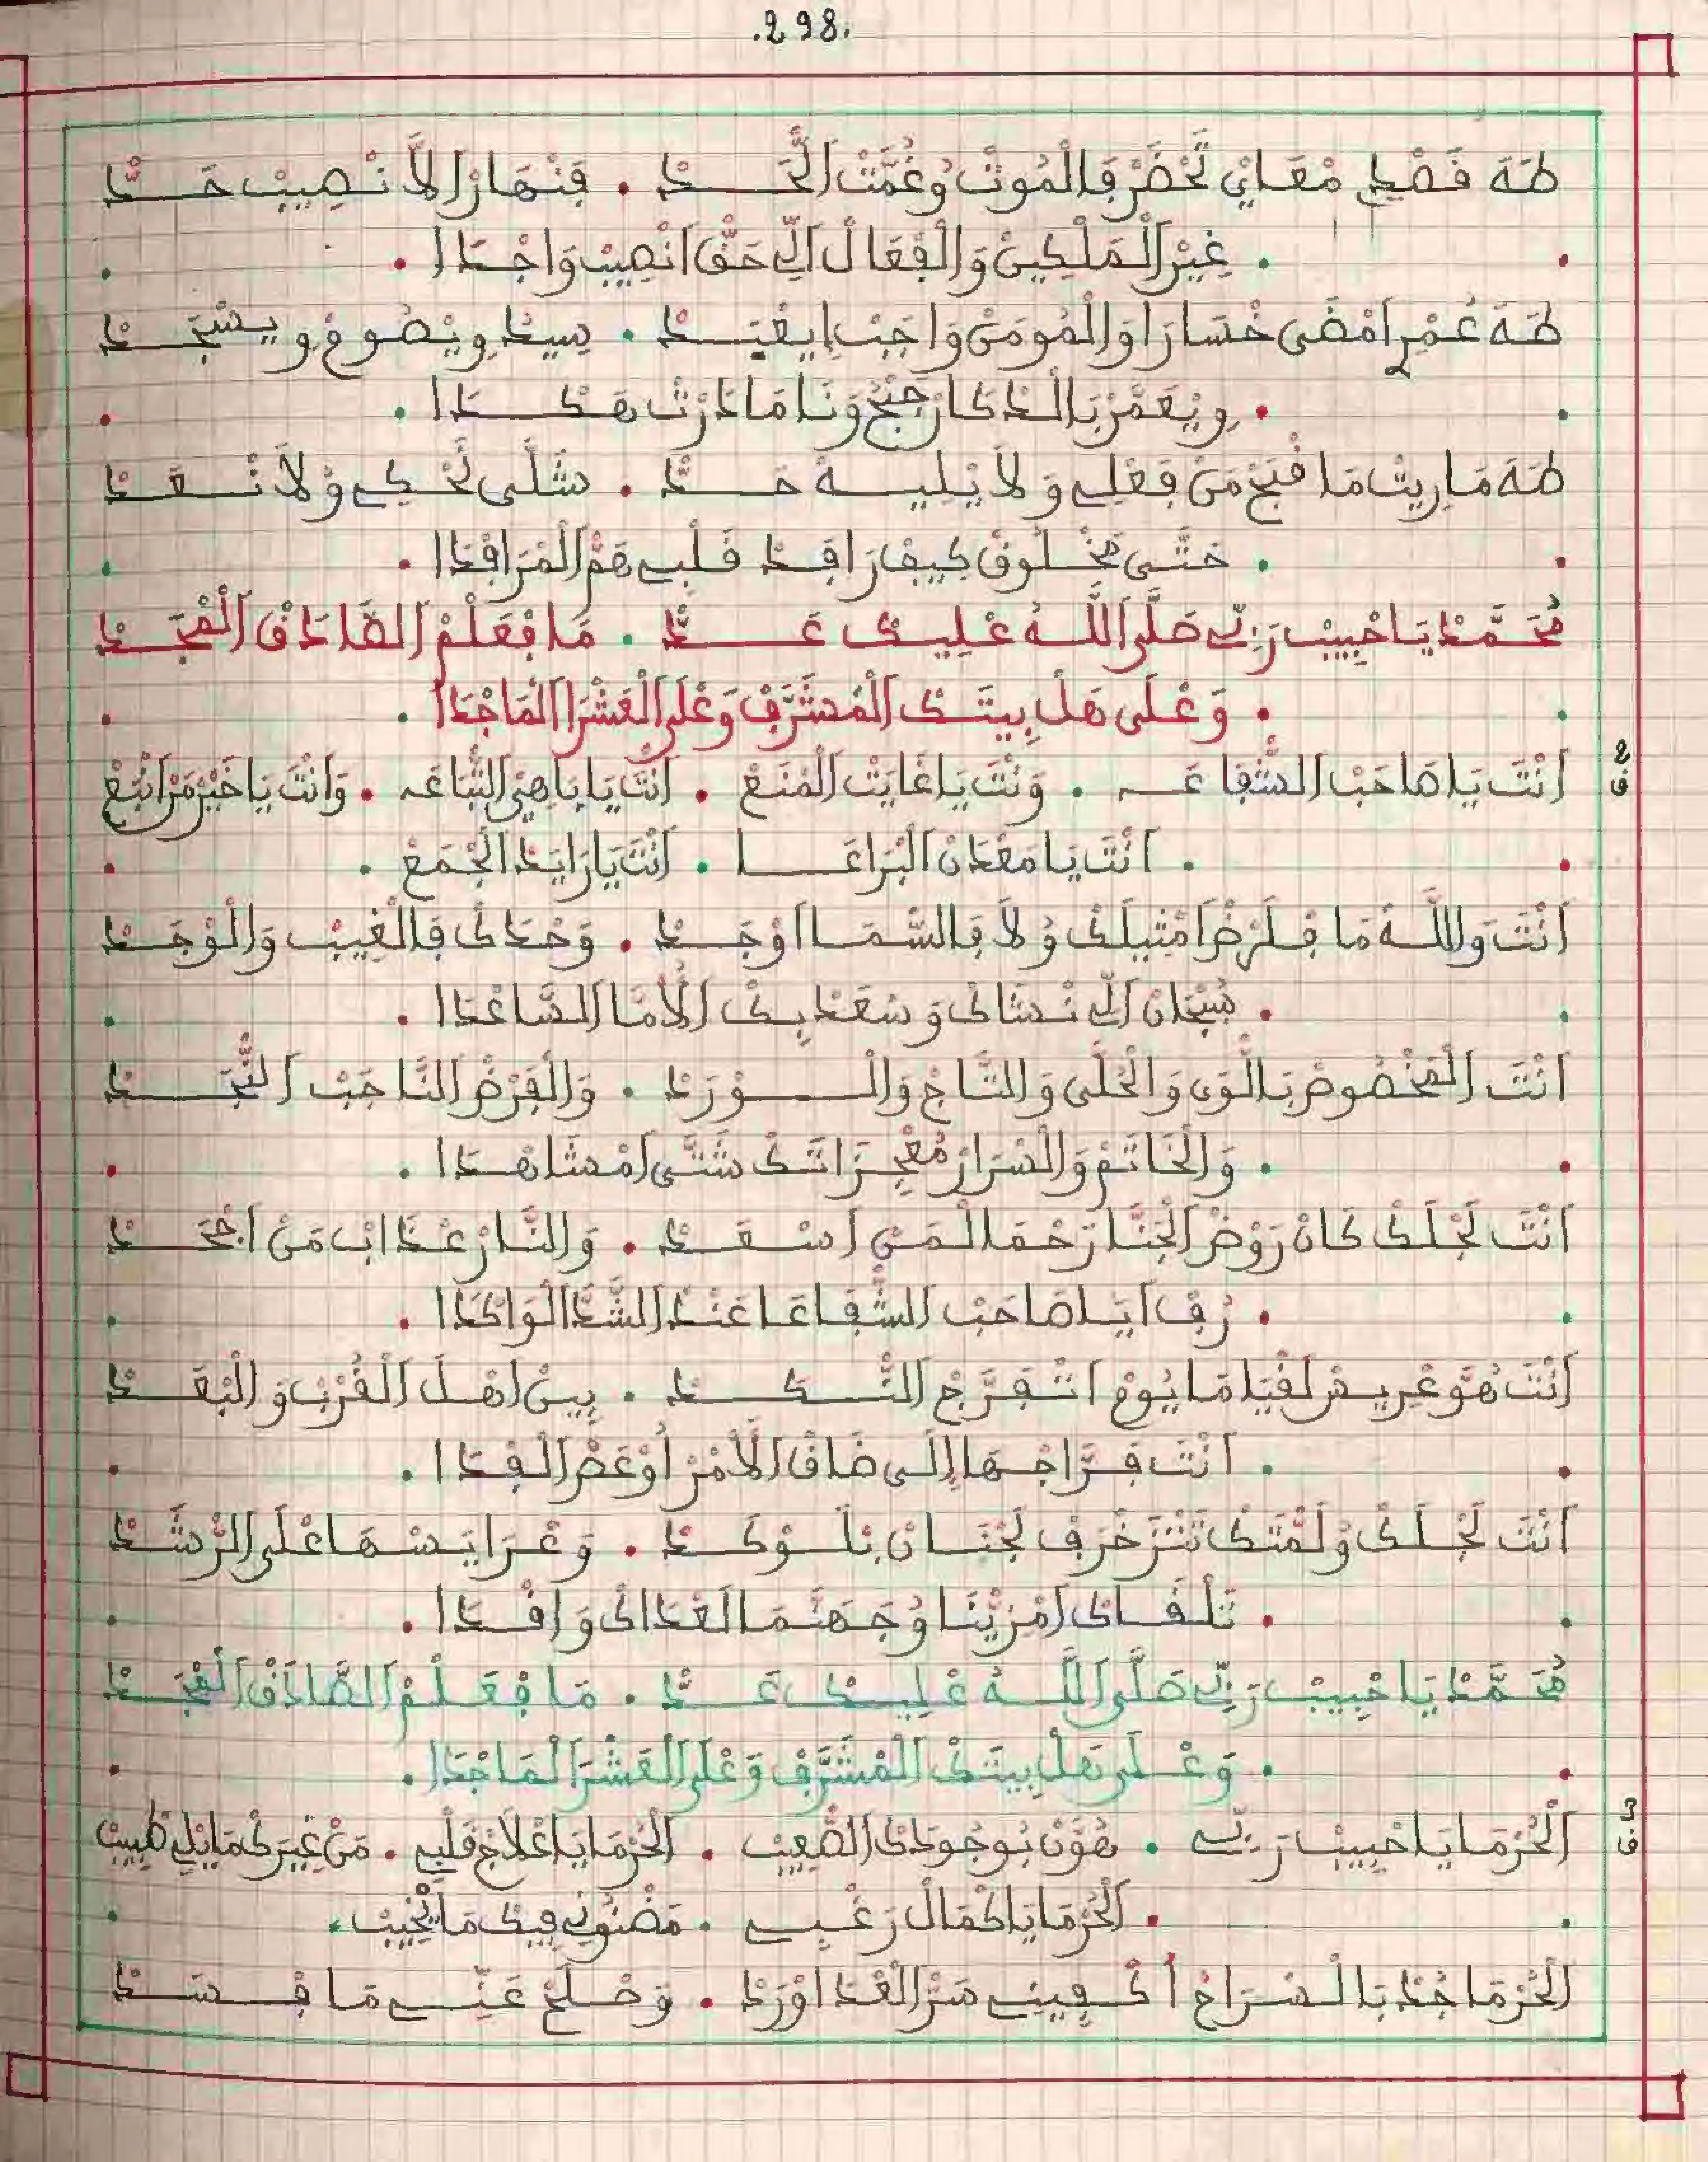 .298.
طَهَ فَصْدِ مْعَايْ تَّحْضَرْ فَالْمُوتْ وُغُمَّتْ اَلَّحْدْ • فَنْهَارْ اَلَّا نْصِيبْ حَدّْ
• غِيرْ اَلْمَلْكِينْ وَالْفْعَالْ اَلِّي حَقّْ اَنْصِيبْ وَاجْدَا •
طَهَ عُمْرِ اَمْضَى خْسَارَا وَالْمُومَنْ وَاجَبْ اِيعْبَدْ • سِيدُ وِيْصُومْ وِيسْجَدْ
• وِيْعَمَّرْ بَالْدْكَارْ جَبْحُ وَنَا مَا دَرْتْ هَكْدَا •
طَهَ مَا رِيتْ مَا قْبَحْ مَنْ فَعْلِي وَلَا يْلِيهْ حَدّْ • شَلَّى نَّحْكِي وْلَا نْعَدّْ
• حَتَّى مَخْلُوقْ كِيفْ رَاقَدْ قَلْبِي هَمّْ اَلْمْرَاقْدَا •
مُحَمَّدْ يَا حْبِيبْ رَبِّي صَلَّى اَللَّهُ عْلِيكْ عَدّْ • مَا فْعَلْمْ اَلصَّادَقْ اَلْمْجَدْ
• وَعْلَى هَلْ بِيتَكْ اَلْمْشَرَّفْ وَعْلَى اَلْعَشْرَا اَلْمَاجْدَا •
ف2 اَنْتَ يَا صَاحَبْ اَلشّْفَاعَه • وَنْتَ يَا غَايَتْ اَلْمْنَعْ • اَنْتَ يَا بَاهِي اَلتّْبَاعَه • وَانْتَ يَا خَيْرْ مَنْ اتّْبَعْ
• اَنْتَ يَا مَعْدَانْ اَلْبْرَاعَا • اَنْتَ يَا رَايَدْ اَلْجْمَعْ •
اَنْتَ وَاللَّهْ مَا فْلَرْضْ اَمْثِيلَكْ وُلَا فَالسّْمَا اَوْجَدْ • وَحْدَكْ فَالْغِيبْ وَالْوْجَدْ
• سُبْحَانْ اَلِّي نْشَاكْ وَسْعَدْ بِكْ اَلْأُمَّا اَلْسَّاعْدَا •
اَنْتَ اَلْمَخْصُوصْ بَالْوَى وَالْحُلَّى وَالتَّاجْ وَالْوْرَدْ • وَالْفَرْضْ اَلنَّاجَبْ اَلنّْجَدْ
• وَالْخَاتَمْ وَالْسْرَارْ مُعْجِزَاتَكْ شَتَّى اَمْشَاهْدَا •
اَنْتَ لَجْلَكْ كَانْ رَوْضْ اَلْجَنَّا رَحْمَا اَلْمَنْ اَسْعَدْ • وَالنَّارْ عْذَابْ مَنْ اَجْحَدْ
• رُفْ اَيَا صَاحَبْ اَلشّْفَاعَا عَنْدْ اَلشَّدَّا اَلْوَاكْدَا •
اَنْتَ هُوَّ عْرِيسْ لَقْيَامَا يُومْ اَتْفَرَّجْ اَلنّْكَدْ • بِينْ اَهْلْ اَلْقُرْبْ وَالْبْعَدْ
• اَنْتَ فَرَّاجْهَا إِلَى ضَاقْ اَلْأَمْرْ أُوْعَضّْ اَلْفْدَا •
اَنْتَ لَجْلَكْ وْلَمّْتَكْ تَتْزَخْرَفْ لَجْنَانْ بَلْوْكَدْ • وَعْرَايَسْهَا عْلَى اَلرّْشَدْ
• تَلْقَاكْ اَمْزَيّْنَا وُجَهَنَّمَا لَعْدَاكْ وَاقْدَا •
مُحَمَّدْ يَا حْبِيبْ رَبِّي صَلَّى اَللَّهُ عْلِيكْ عَدّْ • مَا فْعَلْمْ اَلصَّادَقْ اَلْمْجَدْ
• وَعْلَى هَلْ بِيتَكْ اَلْمْشَرَّفْ وَعْلَى اَلْعَشْرَا اَلْمَاجْدَا •
ف3 اَلْحُرْمَا يَا حْبِيبْ رَبِّي • هُوَّنْ بُوجُودَكْ اَلصّْعِيبْ • اَلْحُرْمَا يَا عْلَاجْ قَلْبِي • مَنْ غِيرَكْ مَا يْلِي طْبِيبْ
• اَلْحُرْمَا يَا كْمَالْ رَغْبِي • مَضْنُونِي فِيكْ مَا يْخِيبْ •
اَلْحُرْمَا جُدْ بَالْسْرَاحْ أَكْفِينِي مَنْ اَلْعْدَا اوْرَدْ • وَصْلَحْ عَنِّي مَا فْسَدْ